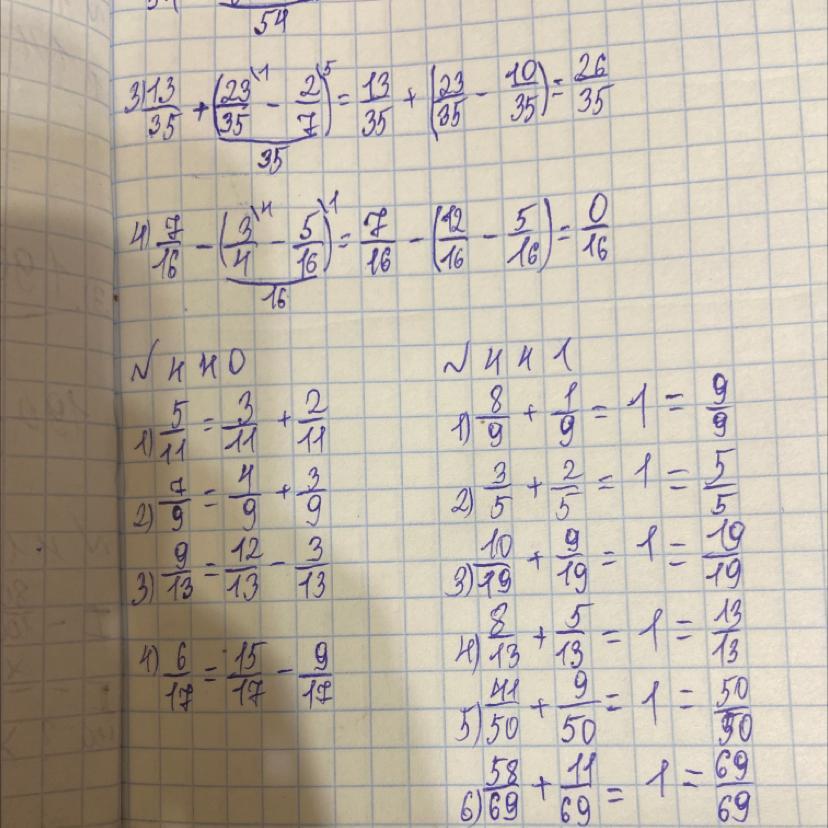 54
3) 13/35 + (23/35 \1 - 2/7 \5) = 13/35 + (23/35 - 10/35) = 26/35
35
4) 7/16 - (3/4 \4 - 5/16 \1) = 7/16 - (12/16 - 5/16) = 0/16
16
№ 440
1) 5/11 = 3/11 + 2/11
2) 7/9 = 4/9 + 3/9
3) 9/13 = 12/13 - 3/13
4) 6/17 = 15/17 - 9/17
№ 441
1) 8/9 + 1/9 = 1 = 9/9
2) 3/5 + 2/5 = 1 = 5/5
3) 10/19 + 9/19 = 1 = 19/19
4) 8/13 + 5/13 = 1 = 13/13
5) 41/50 + 9/50 = 1 = 50/50
6) 58/69 + 11/69 = 1 = 69/69